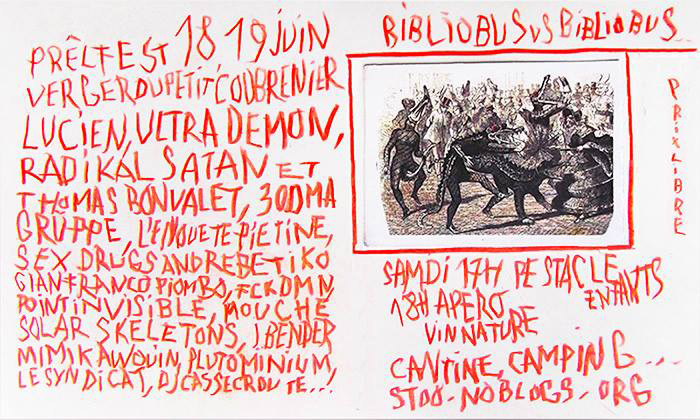 PRÊLFEST 18,19 JUIN
VERGER DU PETIT, COUBRENIER
LUCIEN, ULTRA DEMON,
RADIKAL SATAN ET
THOMAS BONVALET, 30DMA
GRUPPE, L'ENQUETE PIETINE,
SEX DRUGS AND REBETIKO
GIANFRANCO PIOMBO, FCKDMN,
POINT INVISIBLE, MOUCHE
SOLAR SKELETONS, J.BENDER
MIMIKAWOUIN, PLUTOMINIUM,
LE SYNDICAT, DJ CASSECROUTE...!
BIBLIOBUS VS BIBLIOBUS...
PRIX LIBRE
SAMDI 17H PESTACLE
ENFANTS
18H APERO
VIN NATURE
CANTINE, CAMPING...
STOO-NOBLOGS-ORG